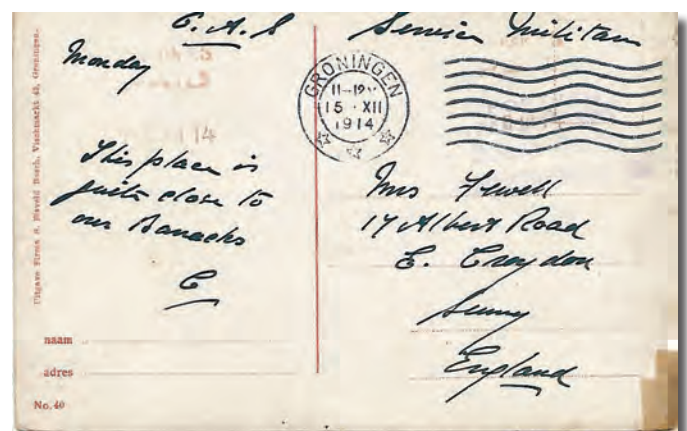 C.A.F
Service Militair
Monday
GRONINGEN
11-12V
15 · XII
1914
This place is
quite close to
our Barracks
C
Mrs Fewell
17 Albert Road
E. Croydon
Surrey
England
Uitgave Firma
Vischmarkt 43, Groningen.
naam
adres
No. 40